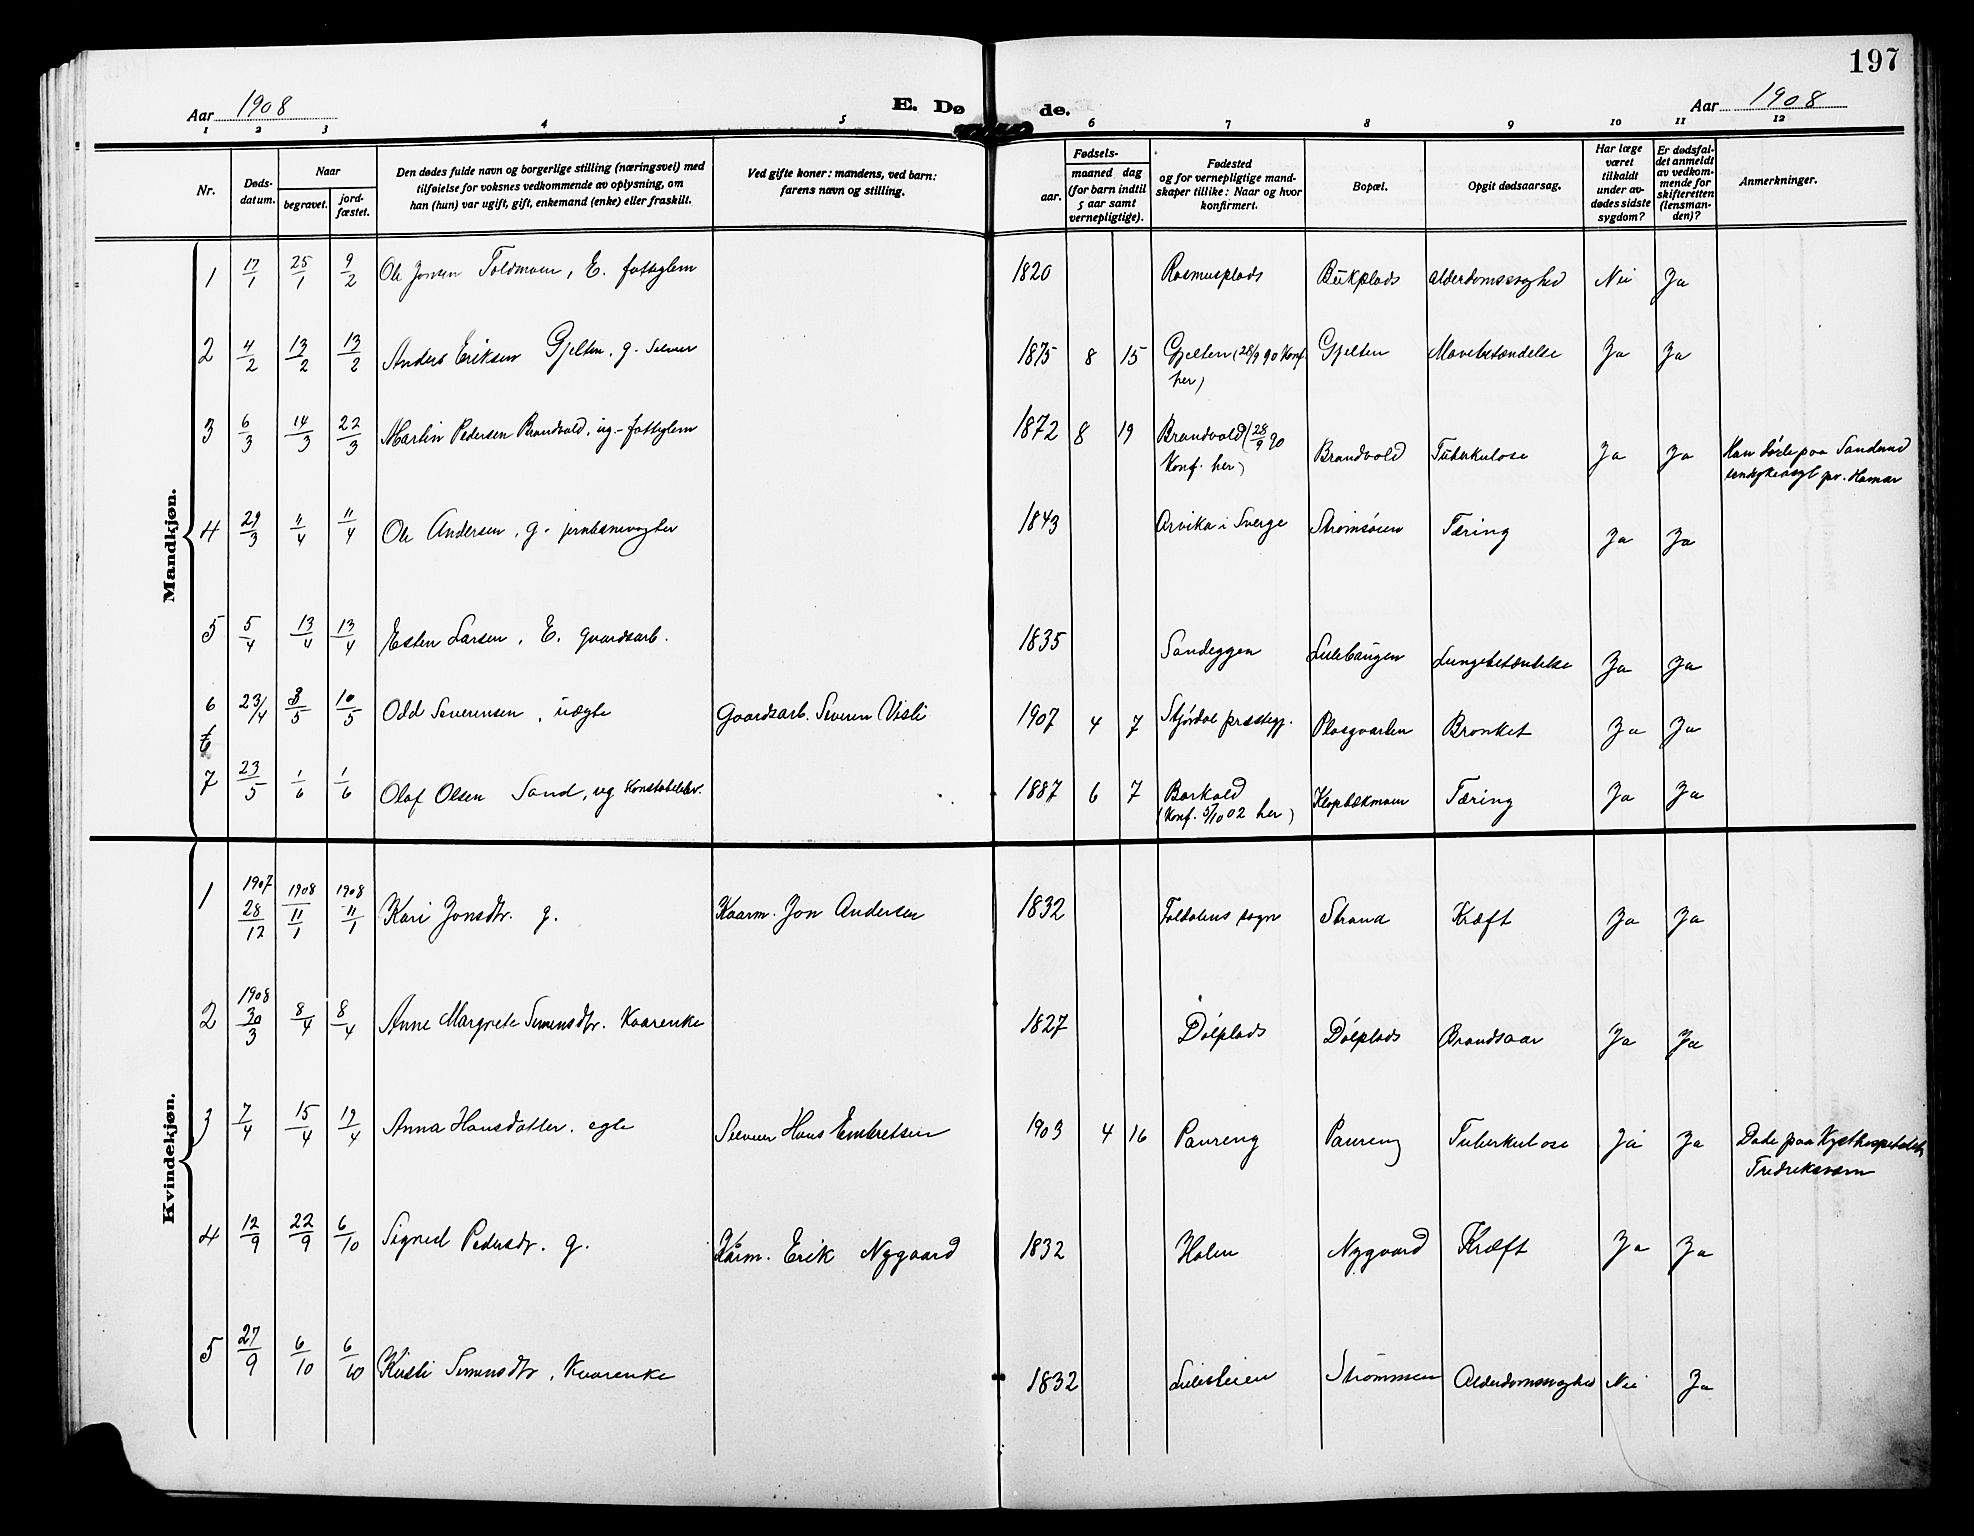 197
Aar 1908
E. Dø de.
Aar 1908
1 2 3 4 5 6 7 8 9 10 11 12
Nr.
Døds-
datum.
Naar
begravet.
jord-
fæstet.
Den dødes fulde navn og borgerlige stilling (næringsvei) med
tilføielse for voksnes vedkommende av oplysning, om
han (hun) var ugift, gift, enkemand (enke) eller fraskilt.
Ved gifte koner: mandens, ved barn:
farens navn og stilling.
Fødsels-
aar.
maaned dag
(for barn indtil
5 aar samt
vernepligtige).
Fødested
og for vernepligtige mand-
skaper tillike: Naar og hvor
konfirmert.
Bopæl.
Opgit dødsaarsag.
Har læge
været
tilkaldt
under av-
dødes sidste
sygdom?
Er dødsfal-
det anmeldt
av vedkom-
mende for
skifteretten
(lensman-
den)?
Anmerkninger.
Mandkjøn.
1 17/1 25/1 9/2 Ole Jonsen Foldmoen, E. fattiglem 1820 Rasmusplads Bukplads alderdomssvaghed Nei Ja
2 4/2 13/2 13/2 Anders Eriksen Gjelten, g. Selveier 1875 8 15 Gjelten (28/9 90 Konf. Gjelten Mavebetændelse Ja Ja
her)
3 6/3 14/3 22/3 Martin Pedersen Brandvold, ug. fattiglem 1872 8 19 Brandvold (28/9 90 Brandvold Tuberkulose Ja Ja Han døde paa Sanderud
Konf. her) sindsykeasyl pr. Hamar
4 29/3 11/4 11/4 Ole Andersen, g. jernbanevogter 1843 Arvika i Sverge Strømsøien Tæring Ja Ja
5 5/4 13/4 13/4 Esten Larsen, E. gaardsarb. 1835 Sandeggen Lillehaugen Lungebetændelse Ja Ja
6 23/4 3/5 10/5 Odd Severensen, uægte Gaardsarb. Severen Visli 1907 4 7 Stjørdal præstegj. Plasgaarden Bronket Ja Ja
7 23/5 1/6 1/6 Olaf Olsen Sand, ug Konstabelelev. 1887 6 7 Barkald Klopbækmoen Tæring Ja Ja
(Konf. 5/10 02 her)
Kvindekjøn.
1 1907 28/12 1908 11/1 1908 11/1 Kari Jonsdtr. g. Kaarm. Jon Andersen 1832 Foldalens sogn Strand Kræft Ja Ja
2 1908 30/3 8/4 8/4 Anne Margrete Simensdtr. Kaarenke 1827 Dølplads Dølplads Brandsaar Ja Ja
3 7/4 15/4 19/4 Anna Hansdatter. egte Selveier Hans Embretsen 1903 4 16 Paureng Paureng Tuberkulose Ja Ja Døde paa Kysthospitalet
Fredriksværn
4 12/9 22/9 6/10 Signed Pedersdtr. g. Kårm. Erik Nygaard 1832 Holen Nygaard Kræft Ja Ja
5 27/9 6/10 6/10 Kirsti Simensdtr, Kaarenke 1832 Lillesteien Strømmen Alderdomssvaghed Nei Ja